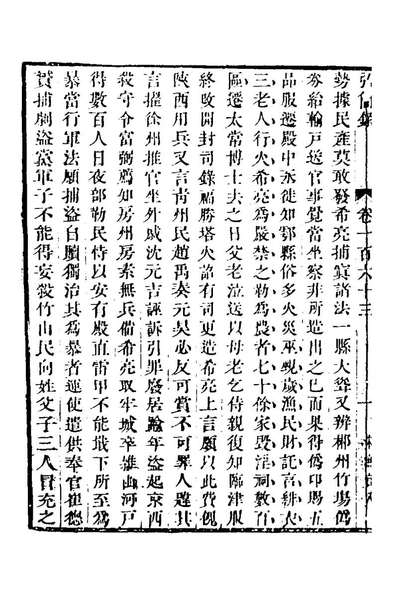 卷一百六十三
勢據民產莫敢發希亮捕寘諸法一縣大聳又辨郴州竹場僞
券給輸戶送官事覺當坐察非所造出之已而果得僞印賜五
品服遷殿中丞徙知鄠縣俗多火災巫覡歲漁民財託言緋衣
三老人行火希亮爲嚴禁之勒爲農者七十餘家毀淫祠數百
區遷太常博士去之日父老泣送以母老乞侍親復知臨津服
終改開封司錄福勝塔火諂有司更造希亮上言願以此費餽
陝西用兵又言青州民趙禹奏元昊必反可賞不可罪人韙其
言擢徐州推官坐外戚沈元吉誣訴引罪廢居踰年盜起京西
殺守令富弼薦知房州房素無兵備希亮取牢城卒雜山河戶
得數百人日夜部勒民恃以安有殿直雷甲不能戢下所至爲
暴當行軍法願捕盜自贖獨治其爲暴者運使遣供奉官崔德
贇捕劇盜黨軍子不能得妄殺竹山民向姓父子三人冒充之